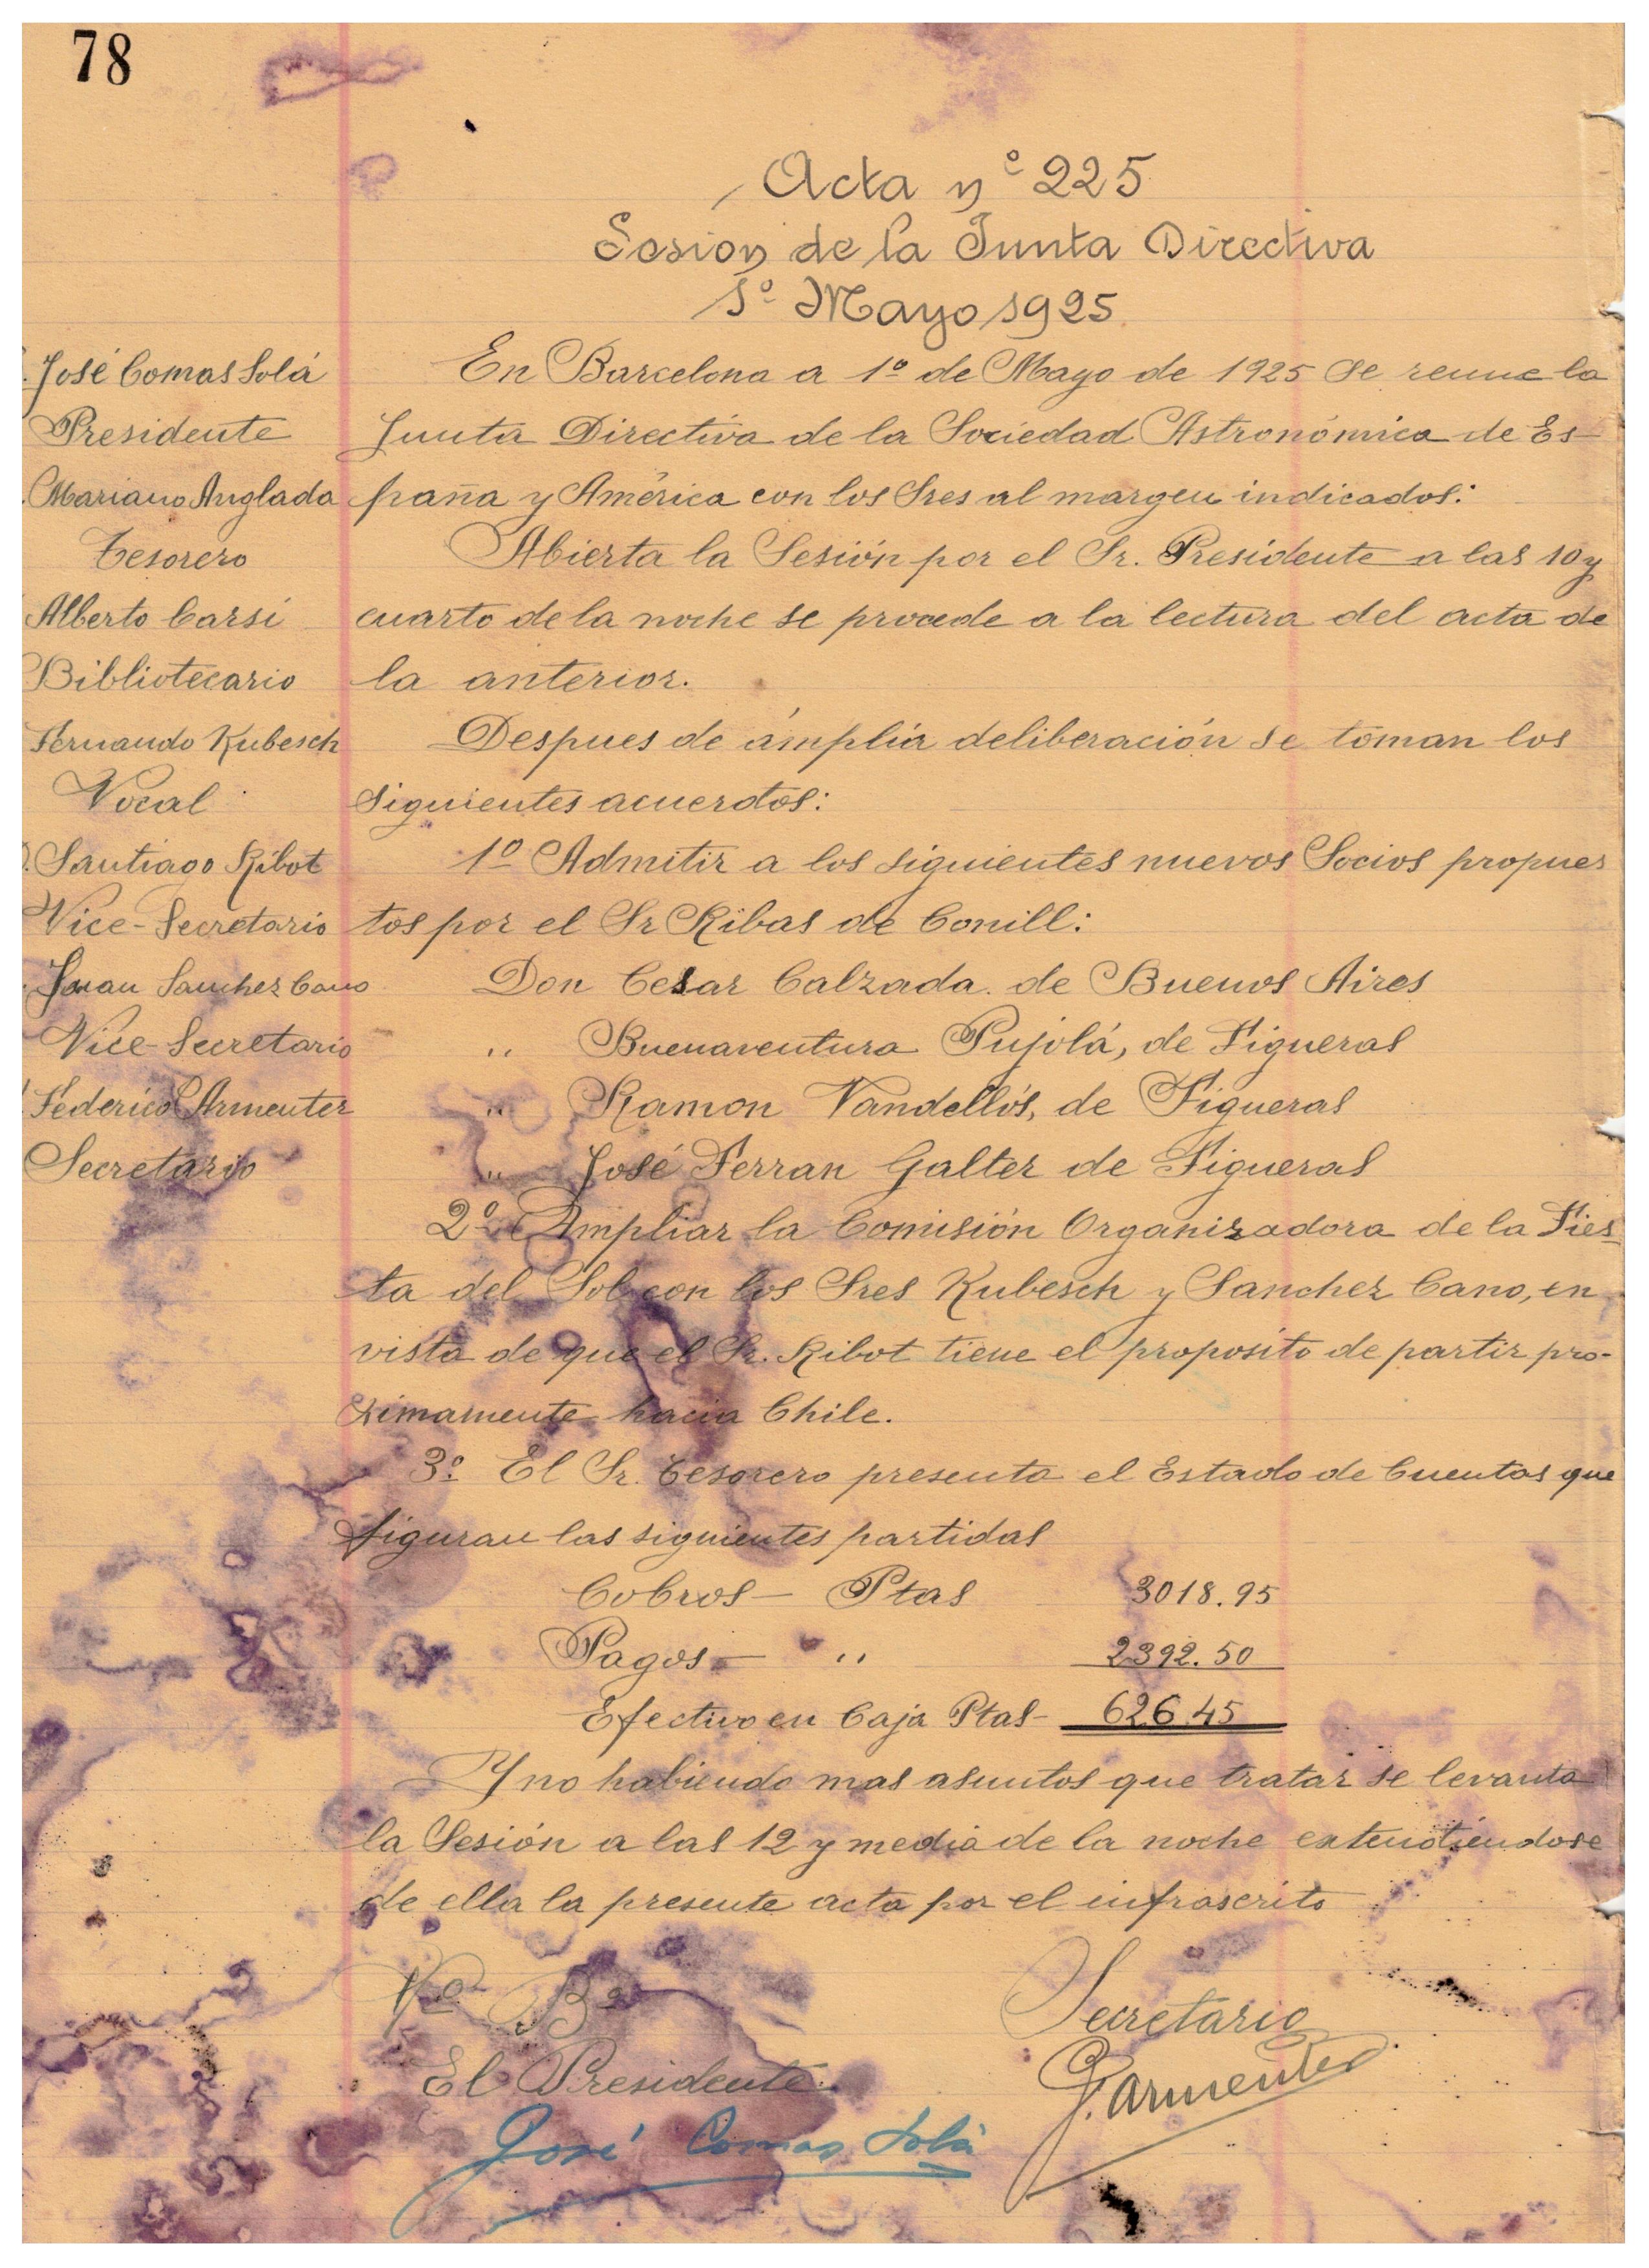 78
Acta nº 225
Sesion de la Junta Directiva
1º Mayo 1925
José Comas Solá
Presidente
Mariano Anglada
Tesorero
Alberto Carsi
Bibliotecario
Fernando Kubesch
Vocal
D. Santiago Ribot
Vice-Secretario
Juan Sanchez Cano
Vice-Secretario
Federico Armenter
Secretario
En Barcelona a 1º de Mayo de 1925 se reune la
Junta Directiva de la Sociedad Astronómica de Es-
paña y América con los Sres al margen indicados:
Abierta la Sesión por el Sr. Presidente a las 10 y
cuarto de la noche se procede a la lectura del acta de
la anterior.
Despues de ámplia deliberación se toman los
siguientes acuerdos:
1º Admitir a los siguientes nuevos Socios propues
tos por el Sr Ribas de Conill:
Don Cesar Calzada. de Buenos Aires
" Buenaventura Pujolá, de Figueras
" Ramon Vandellós, de Figueras
" José Ferran Galter de Figueras
2º Ampliar la Comisión Organizadora de la Fies-
ta del Sol con los Sres Kubesch y Sanchez Cano, en
vista de que el Sr. Ribot tiene el proposito de partir pro-
ximamente hacia Chile.
3º El Sr. Tesorero presenta el Estado de Cuentas que
figuran las siguientes partidas
Cobros - Ptas 3018.95
Pagos - " 2392.50
Efectivo en Caja Ptas - 626.45
Y no habiendo mas asuntos que tratar se levanta
la Sesión a las 12 y media de la noche extendiéndose
de ella la presente acta por el infrascrito
Vº Bº
El Presidente
José Comas Solá
Secretario
F. Armenter